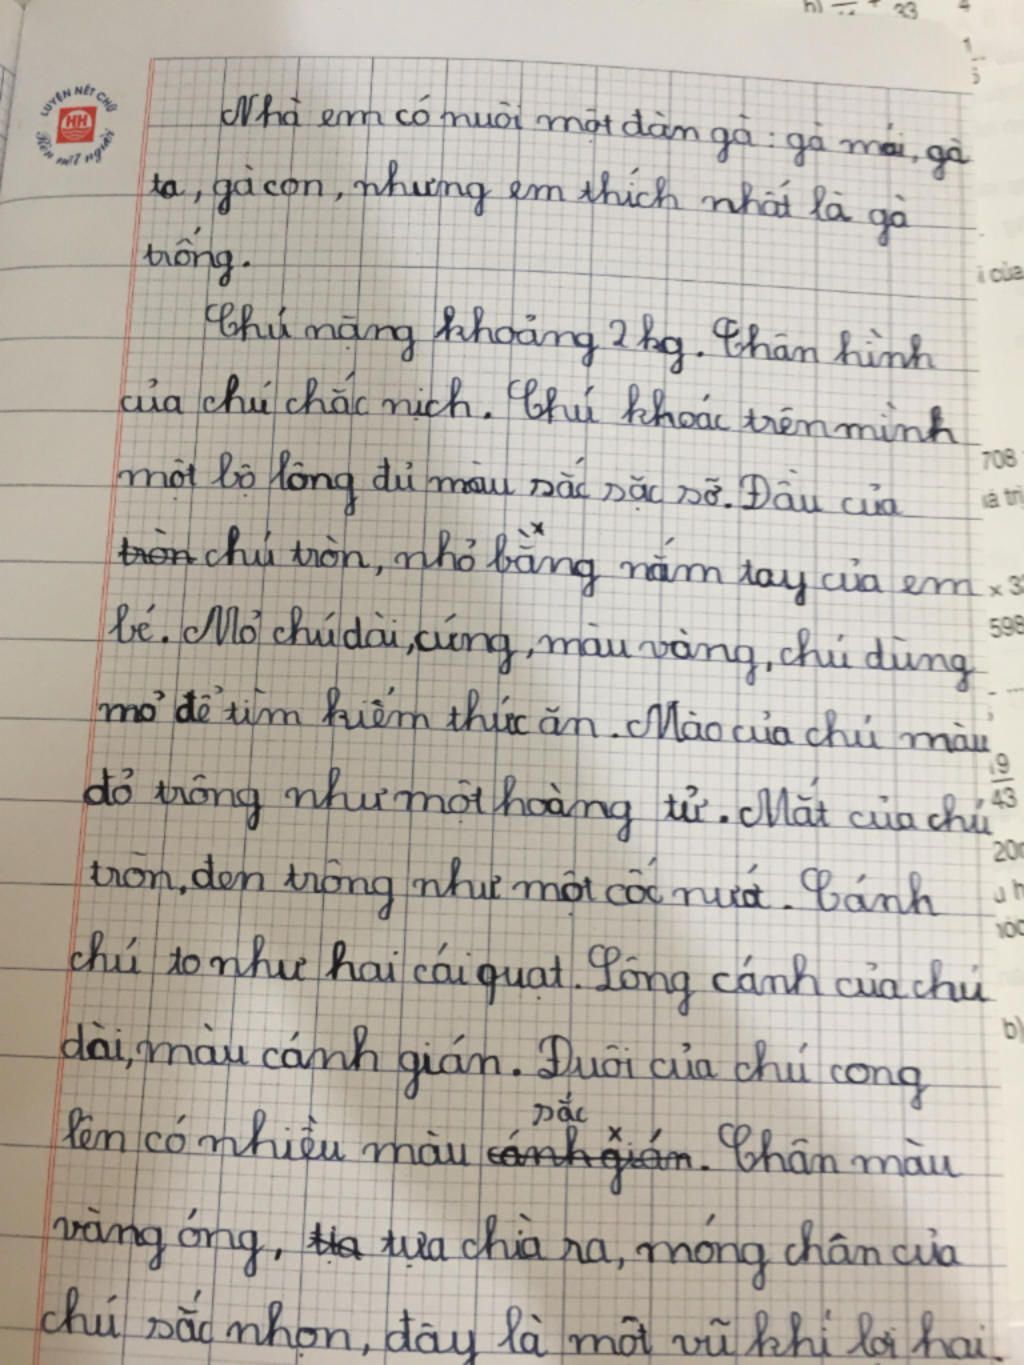 h) 33 4
LUYỆN NÉT CHỮ
HH
Rèn nết người
Nhà em có nuôi một đàn gà : gà mái, gà
ta, gà con, nhưng em thích nhất là gà
trống.
Chú nặng khoảng 2 kg. Thân hình
của chú chắc nịch. Chú khoác trên mình
một bộ lông đủ màu sắc sặc sỡ. Đầu của
tròn chú tròn, nhỏ bằng nắm tay của em
bé. Mỏ chú dài, cứng, màu vàng, chú dùng
mỏ để tìm kiếm thức ăn. Mào của chú màu
đỏ trông như một hoàng tử. Mắt của chú
tròn, đen trông như một cốc nướ. Cánh
chú to như hai cái quạt. Lông cánh của chú
dài, màu cánh gián. Đuôi của chú cong
sắc
lên có nhiều màu cánh gián. Chân màu
vàng óng, tủa tựa chìa ra, móng chân của
chú sắc nhọn, đây là một vũ khí lợi hại.
i của
708
iá trị
x 3
598
19
43
20
100
b)